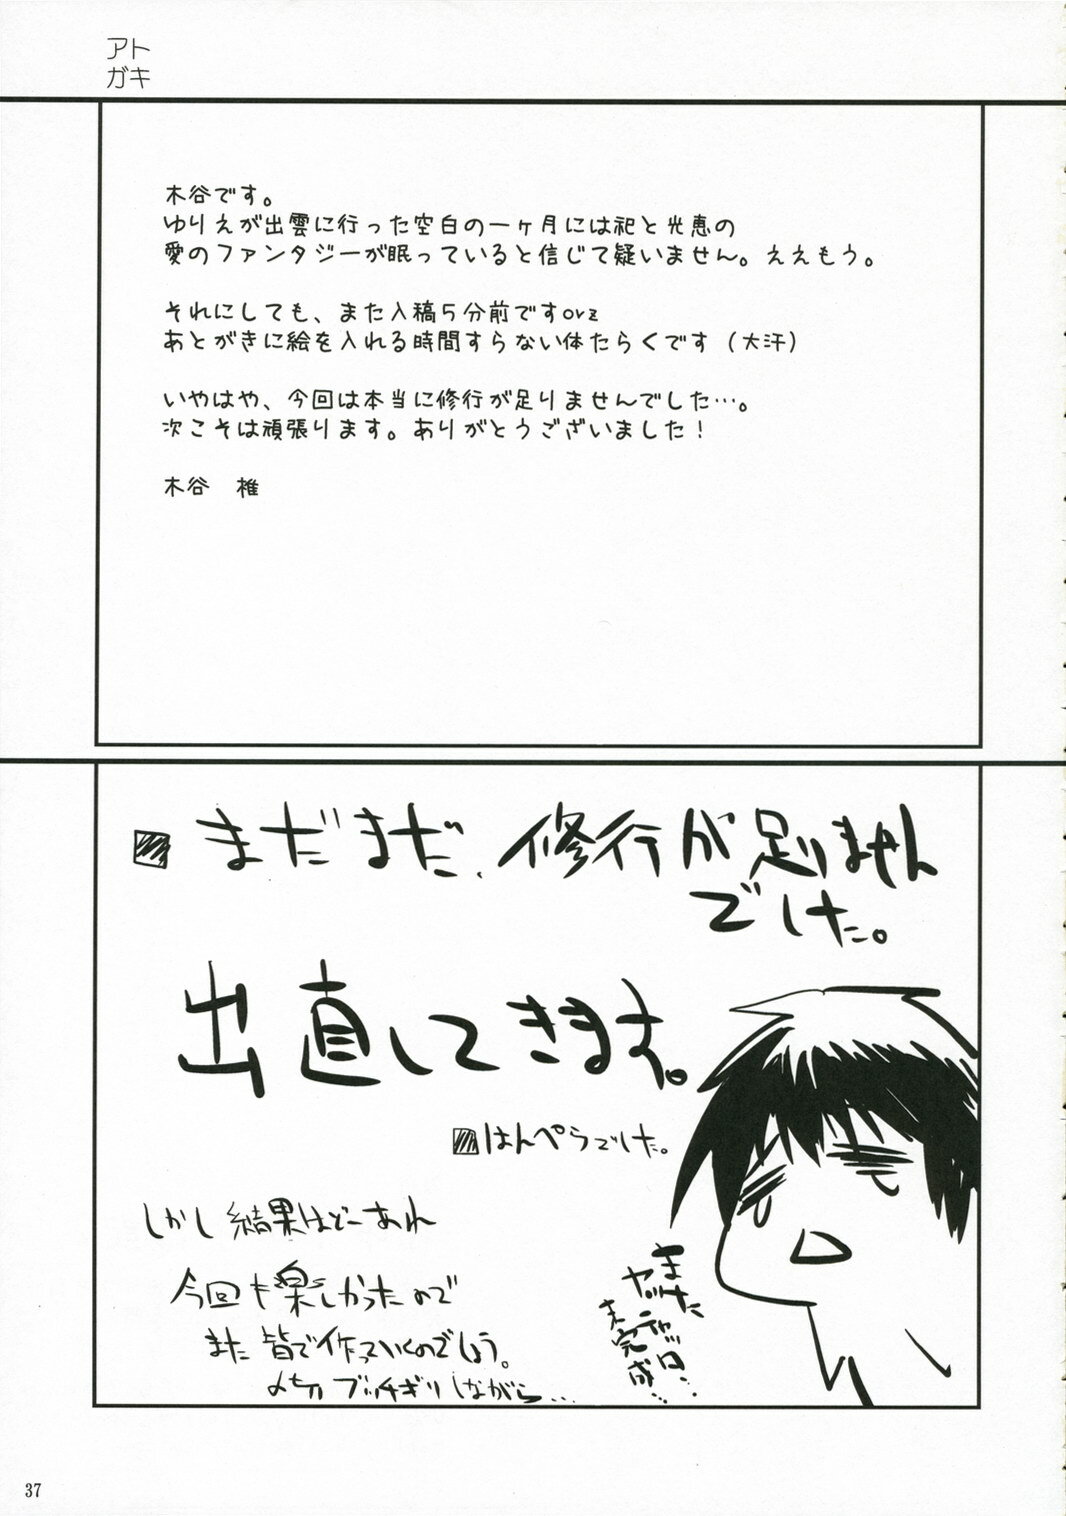 アト
ガキ
木谷です。
ゆりえが出雲に行った空白の一ヶ月には祀と光恵の
愛のファンタジーが眠っていると信じて疑いません。ええもう。
それにしても、また入稿5分前ですorz
あとがきに絵を入れる時間すらない体たらくです（大汗）
いやはや、今回は本当に修行が足りませんでした…。
次こそは頑張ります。ありがとうございました！
木谷 椎
まだまだ、修行が足りません
でした。
出直してきます。
はんぺらでした。
しかし結果はどーあれ
今回も楽しかったので
また皆で作っていくのでしょう。
〆切ブッチギリしながら…
またた
ヤッ
未完成…
37